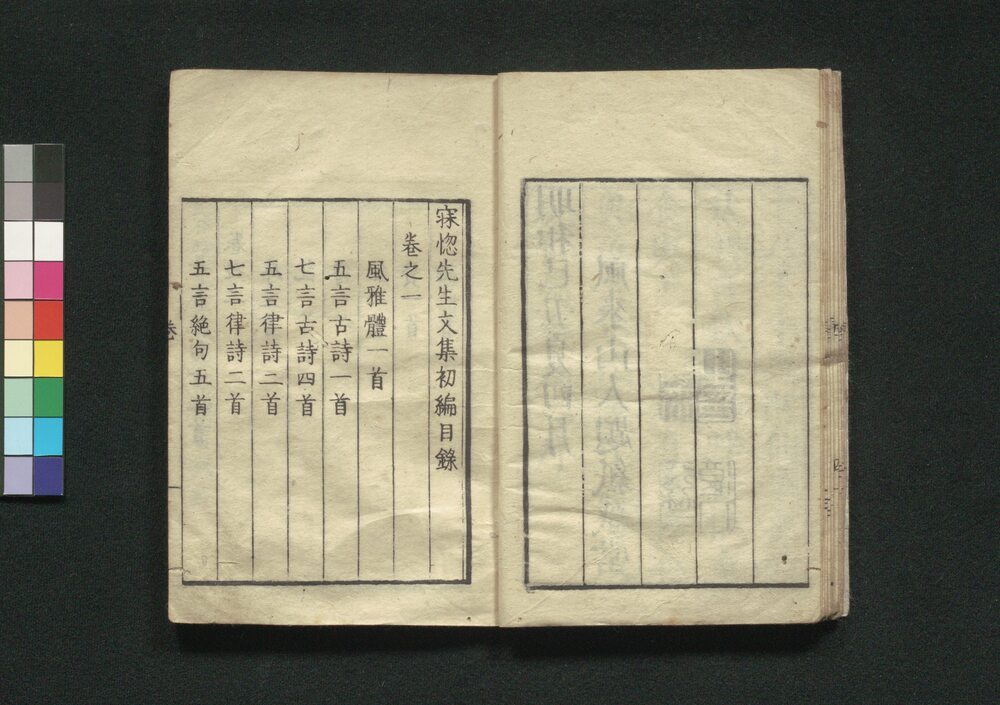 寐惚先生文集初編目錄
卷之一
風雅體一首
五言古詩一首
七言古詩四首
五言律詩二首
七言律詩二首
五言絕句五首